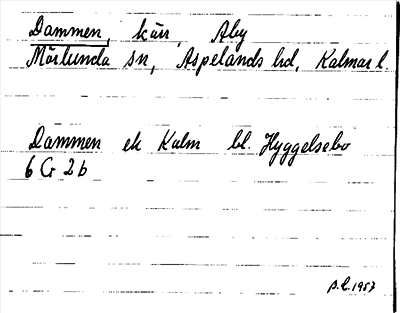 Dammen, kärr, Åby
Mörlunda sn, Aspelands hd, Kalmar l.
Dammen ek Kalm bl. Hyggelsebo
6 G 2 b
1957